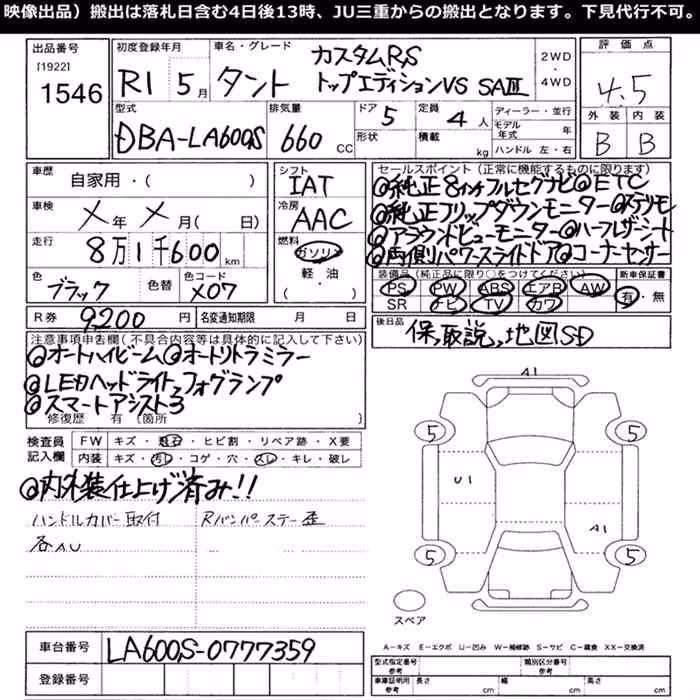 映像出品）搬出は落札日含む4日後13時、JU三重からの搬出となります。下見代行不可。
出品番号 初度登録年月 車名・グレード 2WD・4WD 評価点
[1922]
1546 R1 5月 タント カスタムRS トップエディションVS SAⅢ 4.5
型式 排気量 ドア 定員 ディーラー・並行 外装 内装
DBA-LA600S 660 CC 5 4人 モデル年式 年 B B
形状 積載 kg ハンドル 左・右
車歴 自家用・( ) シフト IAT
車検 メ年 メ月( 日) 冷房 AAC
走行 8万1千600 km 燃料 ガソリン・軽・油 ( )
色 ブラック 色替 色コード X07
R券 9,200円 名変通知期限 月 日
セールスポイント（正常に機能するものに限ります）
@純正8インチフルセグナビ@ETC
@純正フリップダウンモニター@ステリモ
@アラウンドビューモニター@ハーフレザーシート
@両側パワースライドドア@コーナーセンサー
装備品（純正品に限り○をつけてください） 新車保証書
PS PW ABS エアB AW 有・無
SR ナビ TV カワ
後日品 保,取説,地図SD
注意事項申告欄(不具合内容等は具体的に記入して下さい)
@オートハイビーム@オートリトラミラー
@LEDヘッドライト,フォグランプ
@スマートアシスト3
修復歴 有 〔箇所 〕
検査員記入欄 FW キズ・飛石・ヒビ割・リペア跡・X要
内装 キズ・汚レ・コゲ・穴・スレ・キレ・破レ
@内外装仕上げ済み!!
ハンドルカバー取付 Rバンパーステー歪
各AU
A1
5 5
U1
A1
5 5
スペア
A=キズ E=エクボ U=凹み W=補修跡 S=サビ C=腐食 XX=交換済
車台番号 LA600S-0777359
登録番号
型式指定番号 参考 類別区分番号 参考
車庫証明用 参考 長さ cm 幅 cm 高さ cm